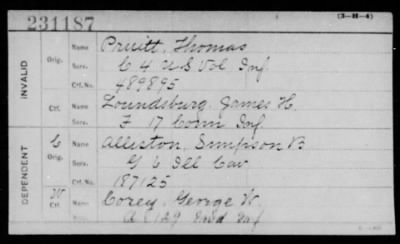 231187
(3-H-4)
INVALID
Orig.
Name Pruitt, Thomas
Serv. C 4 U S Vol Inf
Ctf. No. 489895
Ctf.
Name Loundsburg, James H.
Serv. F 17 Conn Inf
DEPENDENT
C
Orig.
Name Alliston, Simpson B
Serv. G 6 Ill Cav
Ctf. No. 187125
W
Ctf.
Name Corey, George W.
Serv. 129 Ind Inf